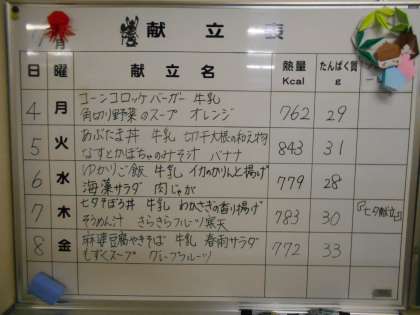 7月 献立表
日 曜 献立名 熱量 Kcal たんぱく質 g
4 月 コーンコロッケバーガー 牛乳 762 29
角切り野菜のスープ オレンジ
5 火 あぶたま丼 牛乳 切干大根の和え物 843 31
なすとかぼちゃのみそ汁 バナナ
6 水 ゆかりご飯 牛乳 イカのかりんと揚げ 779 28
海藻サラダ 肉じゃが
7 木 七夕そぼろ丼 牛乳 わかさぎの香り揚げ 783 30 『七夕献立』
そうめん汁 きらきらフルーツ寒天
8 金 麻婆豆腐やきそば 牛乳 春雨サラダ 772 33
もずくスープ グレープフルーツ